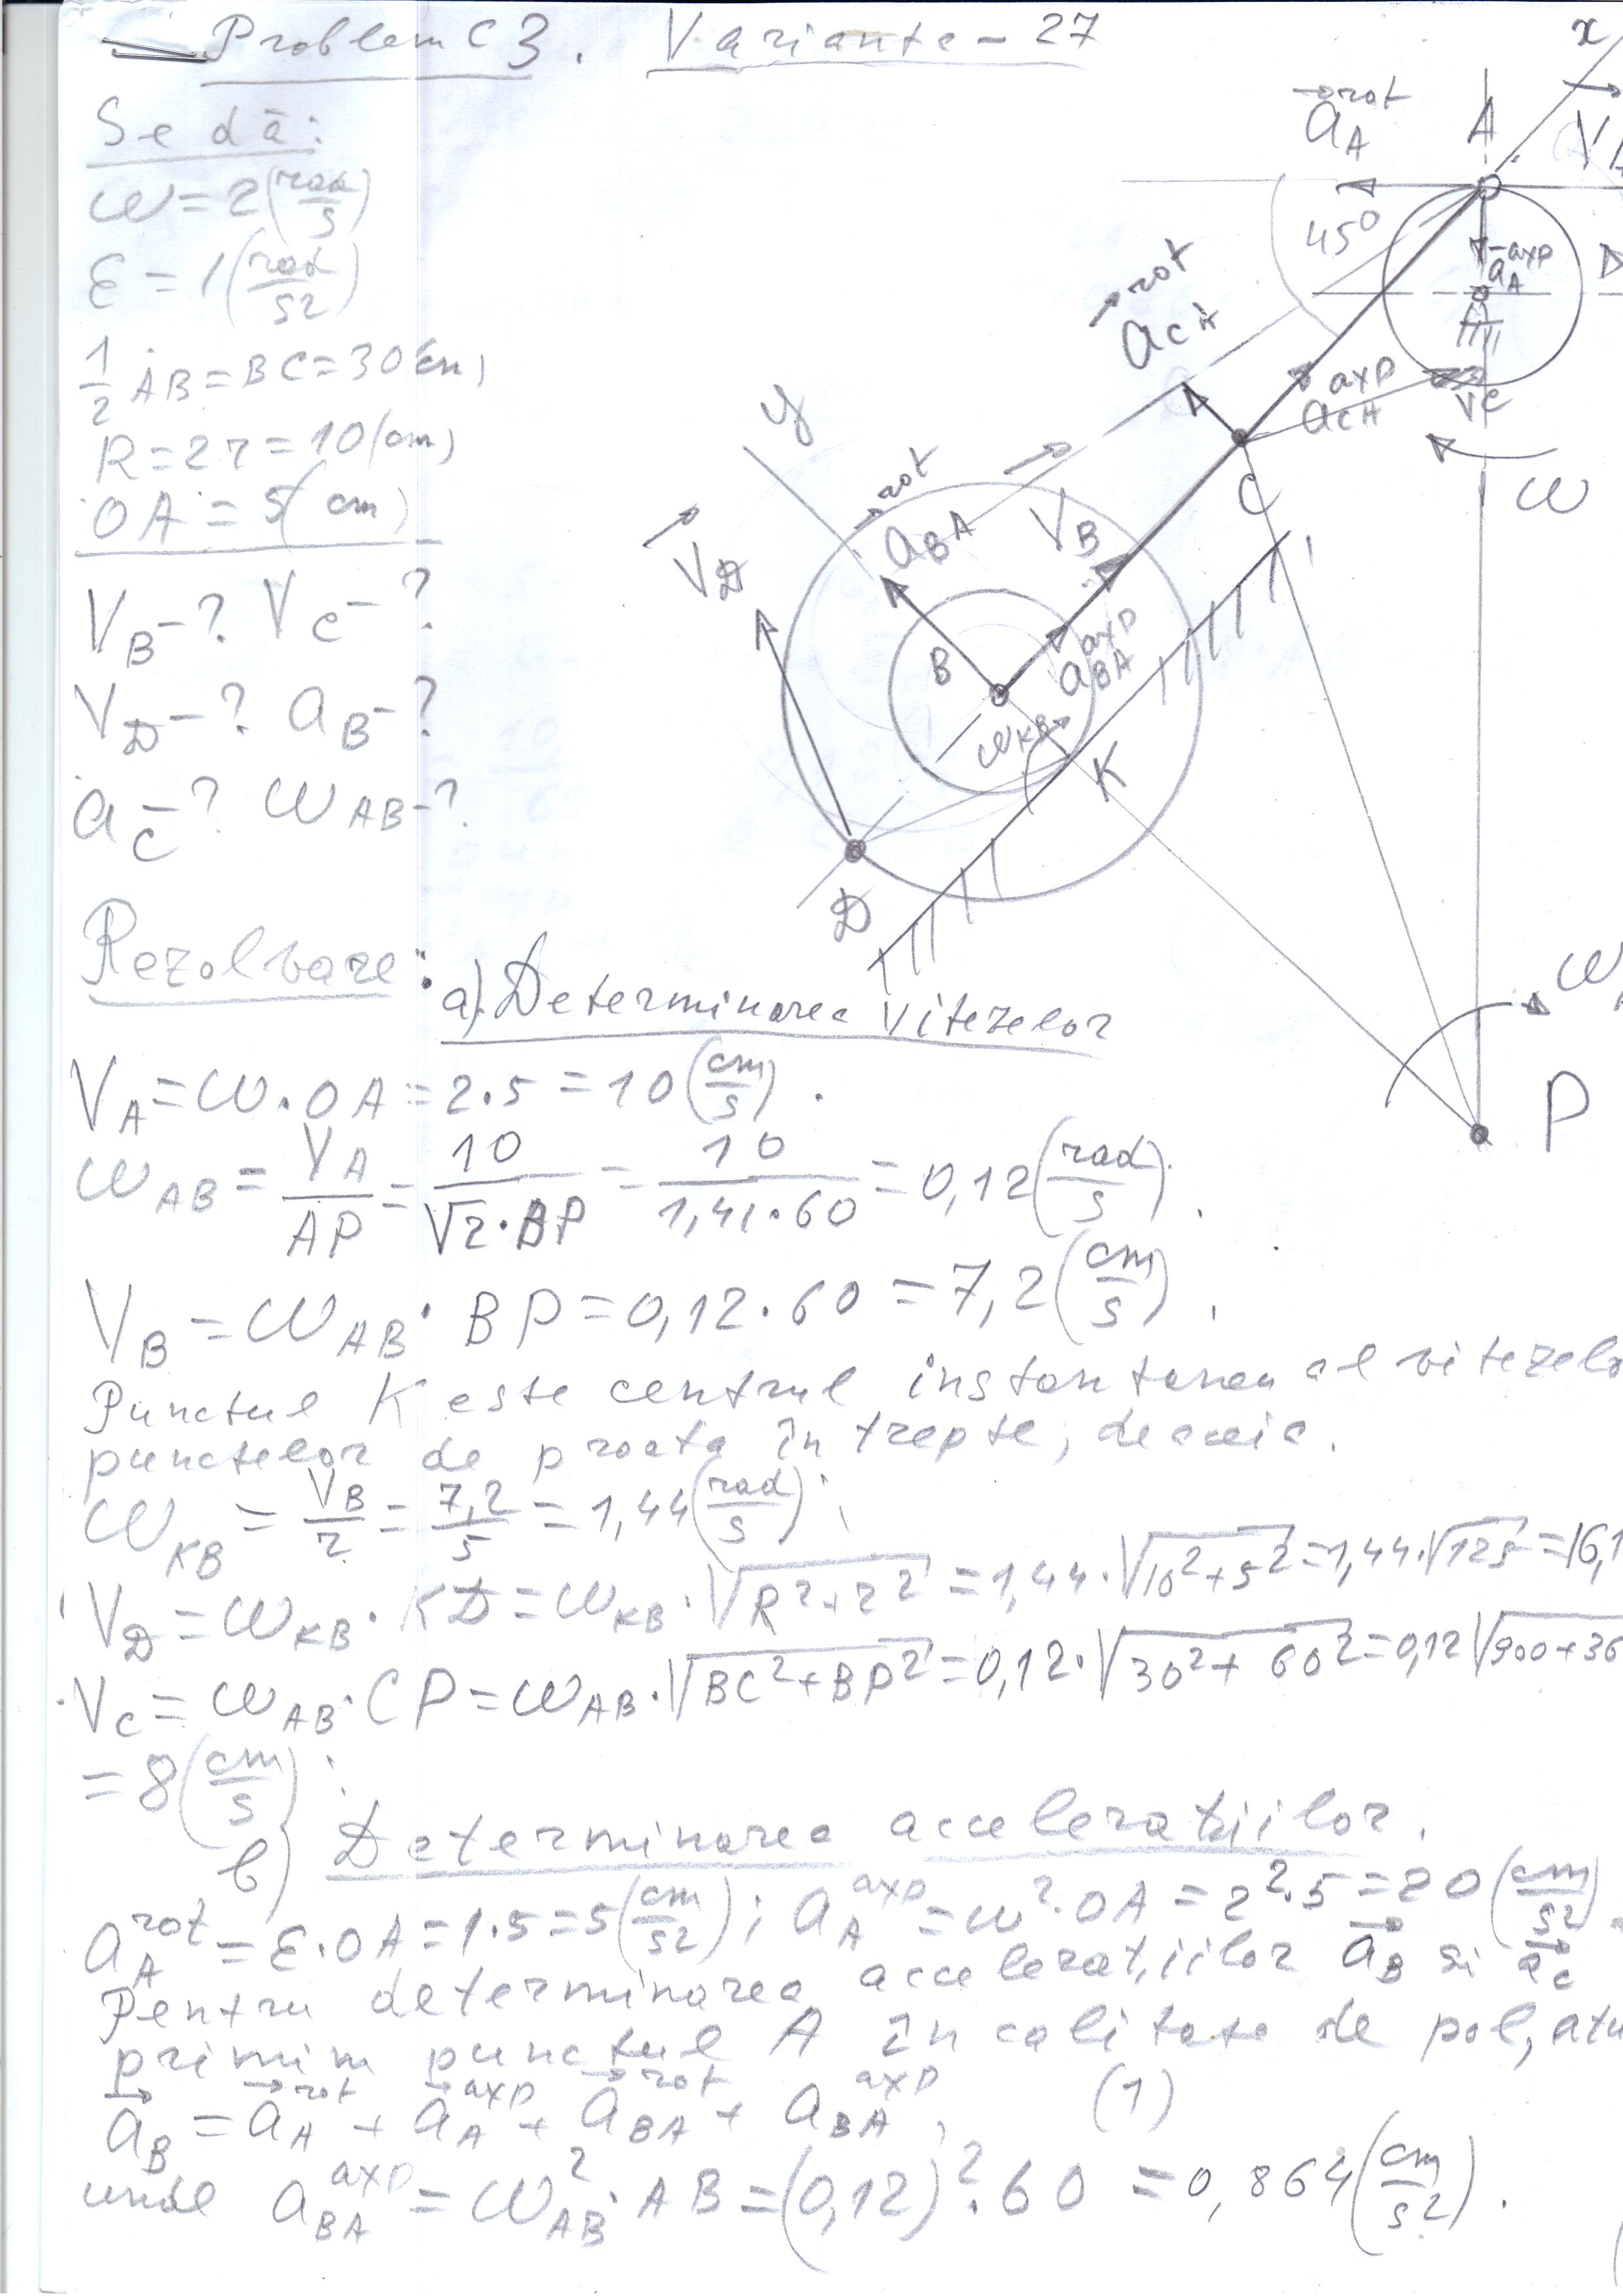 Problem C3. Varianta-27
Se dă:
ω=2(rad/s)
ε=1(rad/s2)
1/2 AB=BC=30(cm)
R=2r=10(cm)
OA=5(cm)
VB-? VC-?
VD-? aB-?
aC-? ωAB-?
x
y
A
aA rot
45°
aA axp
aCA rot
aCA axp
VC
ω
C
aBA rot
VB
aBA axp
VD
B
ωKB
K
D
P
Rezolvare: a). Determinarea vitezelor
VA=ω·OA=2·5=10(cm/s).
ωAB=VA/AP=10/√2·BP=10/1,41·60=0,12(rad/s).
VB=ωAB·BP=0,12·60=7,2(cm/s).
Punctul K este centrul instantaneu al vitezelo
punctelor de roata în trepte, de aceia.
ωKB=VB/r=7,2/5=1,44(rad/s);
VD=ωKB·KD=ωKB·√R2+r2=1,44·√102+52=1,44·√125=16,1
VC=ωAB·CP=ωAB·√BC2+BP2=0,12·√302+602=0,12√900+36
=8(cm/s).
b) Determinarea accelerațiilor.
aA rot=ε·OA=1·5=5(cm/s2); aA axp=ω2·OA=22·5=20(cm/s2).
Pentru determinarea accelerațiilor aB si aC
primim punctul A în calitate de pol, atu
aB=aA rot+aA axp+aBA rot+aBA axp, (1)
unde aBA axp=ωAB2·AB=(0,12)2·60=0,864(cm/s2).